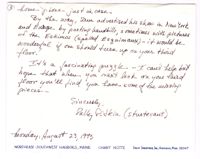 home-piece - just in case.
By the way, Sam advertised his show in New York
and Bangor by posting handbills, sometimes with pictures
of the Eskimos (spelled Esquimaux) - it would be
wonderful if one should turn up on your third
floor.
It's a fascinating puzzle - I can't help but
hope that when you next look on your third
floor you'll find you have some of the missing
pieces.
Sincerely,
(Sturtevant)
Monday, August 23, 1993
NORTHEAST
SOUTHWEST HARBOR, MAINE